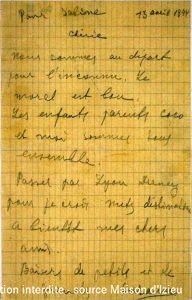 13 août 1944
Chérie
Nous sommes au départ
pour l'inconnu. Le
moral est bon.
Les enfants parents coco
et moi sommes tous
ensemble.
Passé par Lyon
pour je crois Metz destination
à bientôt mes chers
amis.
Baisers de petits et de
tion interdite - source Maison d'Izieu